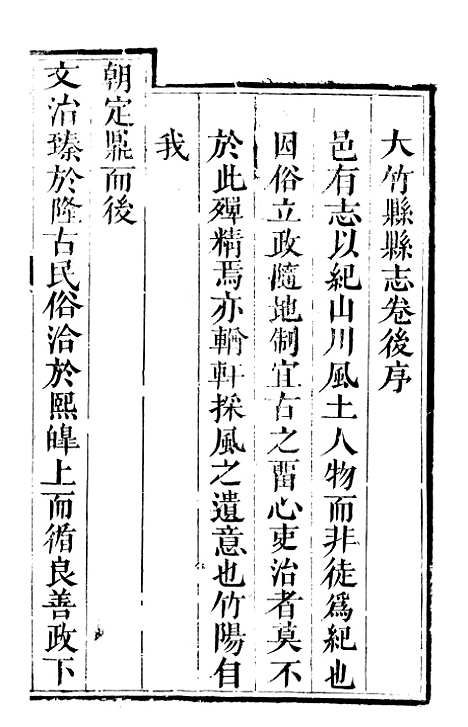 大竹縣縣志卷後序
邑有志以紀山川風土人物而非徒爲紀也
因俗立政隨地制宜古之畱心吏治者莫不
於此殫精焉亦輶軒採風之遺意也竹陽自
我
朝定鼎而後
文治臻於隆古民俗洽於熙皥上而循良善政下